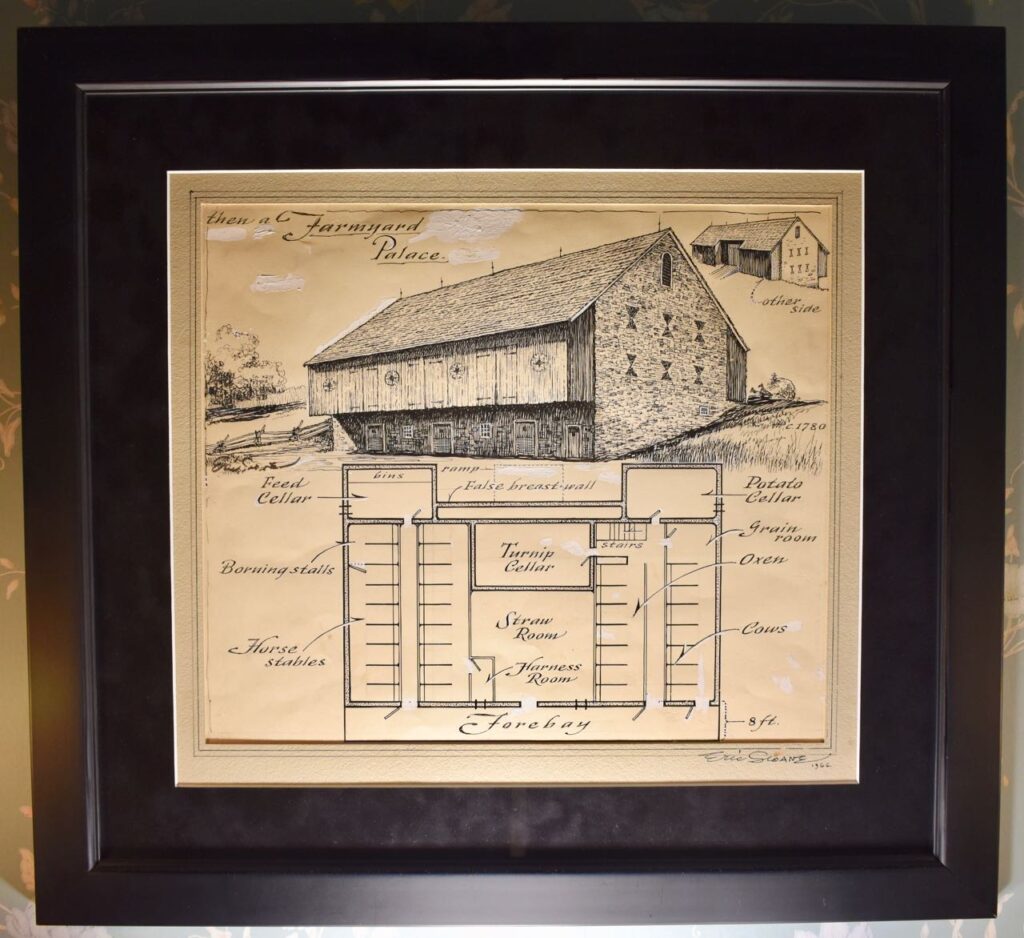 then a Farmyard
Palace.
other
side
c 1780
bins
ramp
False breast-wall
Feed
Cellar
Potato
Cellar
Grain
room
stairs
Turnip
Cellar
Oxen
Borning stalls
Straw
Room
Cows
Horse
stables
Harness
Room
Forebay
8 ft.
Eric Sloane